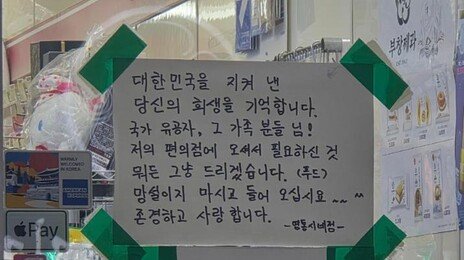 대한민국을 지켜 낸
당신의 희생을 기억합니다.
국가 유공자, 그 가족 분들 님!
저의 편의점에 오셔서 필요하신 것
뭐든 그냥 드리겠습니다. (푸드)
망설이지 마시고 들어 오십시요~~
존경하고 사랑합니다.
-명동시네점-
WARMLY
WELCOMED
IN KOREA.
AMERICAN
EXPRESS
Pay
부창제과